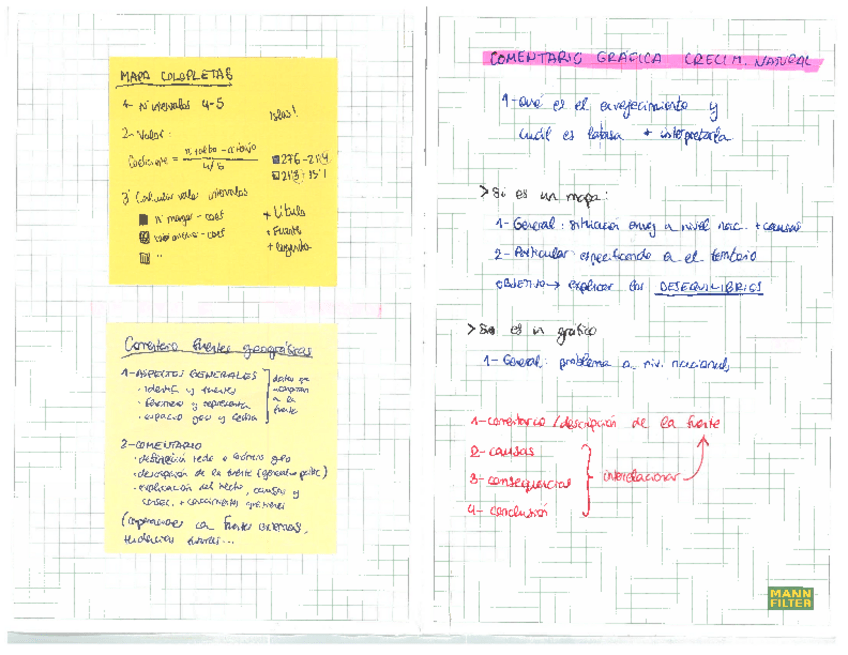 MAPA COLOPLETAS
1- Nº intervalos 4-5
Islas!
2- Valor:
Coeficiente = nº + alto - nº + bajo
4/5
276-214
213-151
3º Calcular valor intervalos
nº mayor - coef
- coef
"
+ Título
+ Fuente
+ Leyenda
Comentario fuentes geográficas
1-ASPECTOS GENERALES
· identif y fuentes
· fenómeno y representa
· espacio geo y fecha
datos que
a la
fuente
2-COMENTARIO
· definición hecho o fenómeno geo
· descripción de la fuente (general o partic)
· explicación del hecho, causas y
consec. + conocimientos
(comparaciones con fuentes externas,
tendencias futuras...
COMENTARIO GRÁFICA CRECIM. NATURAL
1-Qué es el envejecimiento y
cuál es la tasa + interpretarla
> Si es un mapa:
1- General: situación envej a nivel nac. + causas
2- Particular: especificando en el territorio
OBJETIVO → explicar los DESEQUILIBRIOS
> Si es un gráfico
1- General: problema a niv. nacional,
1- comentario / descripción de la fuente
2- causas
3- consequencias
interrelacionar
4- conclusión
MANN
FILTER